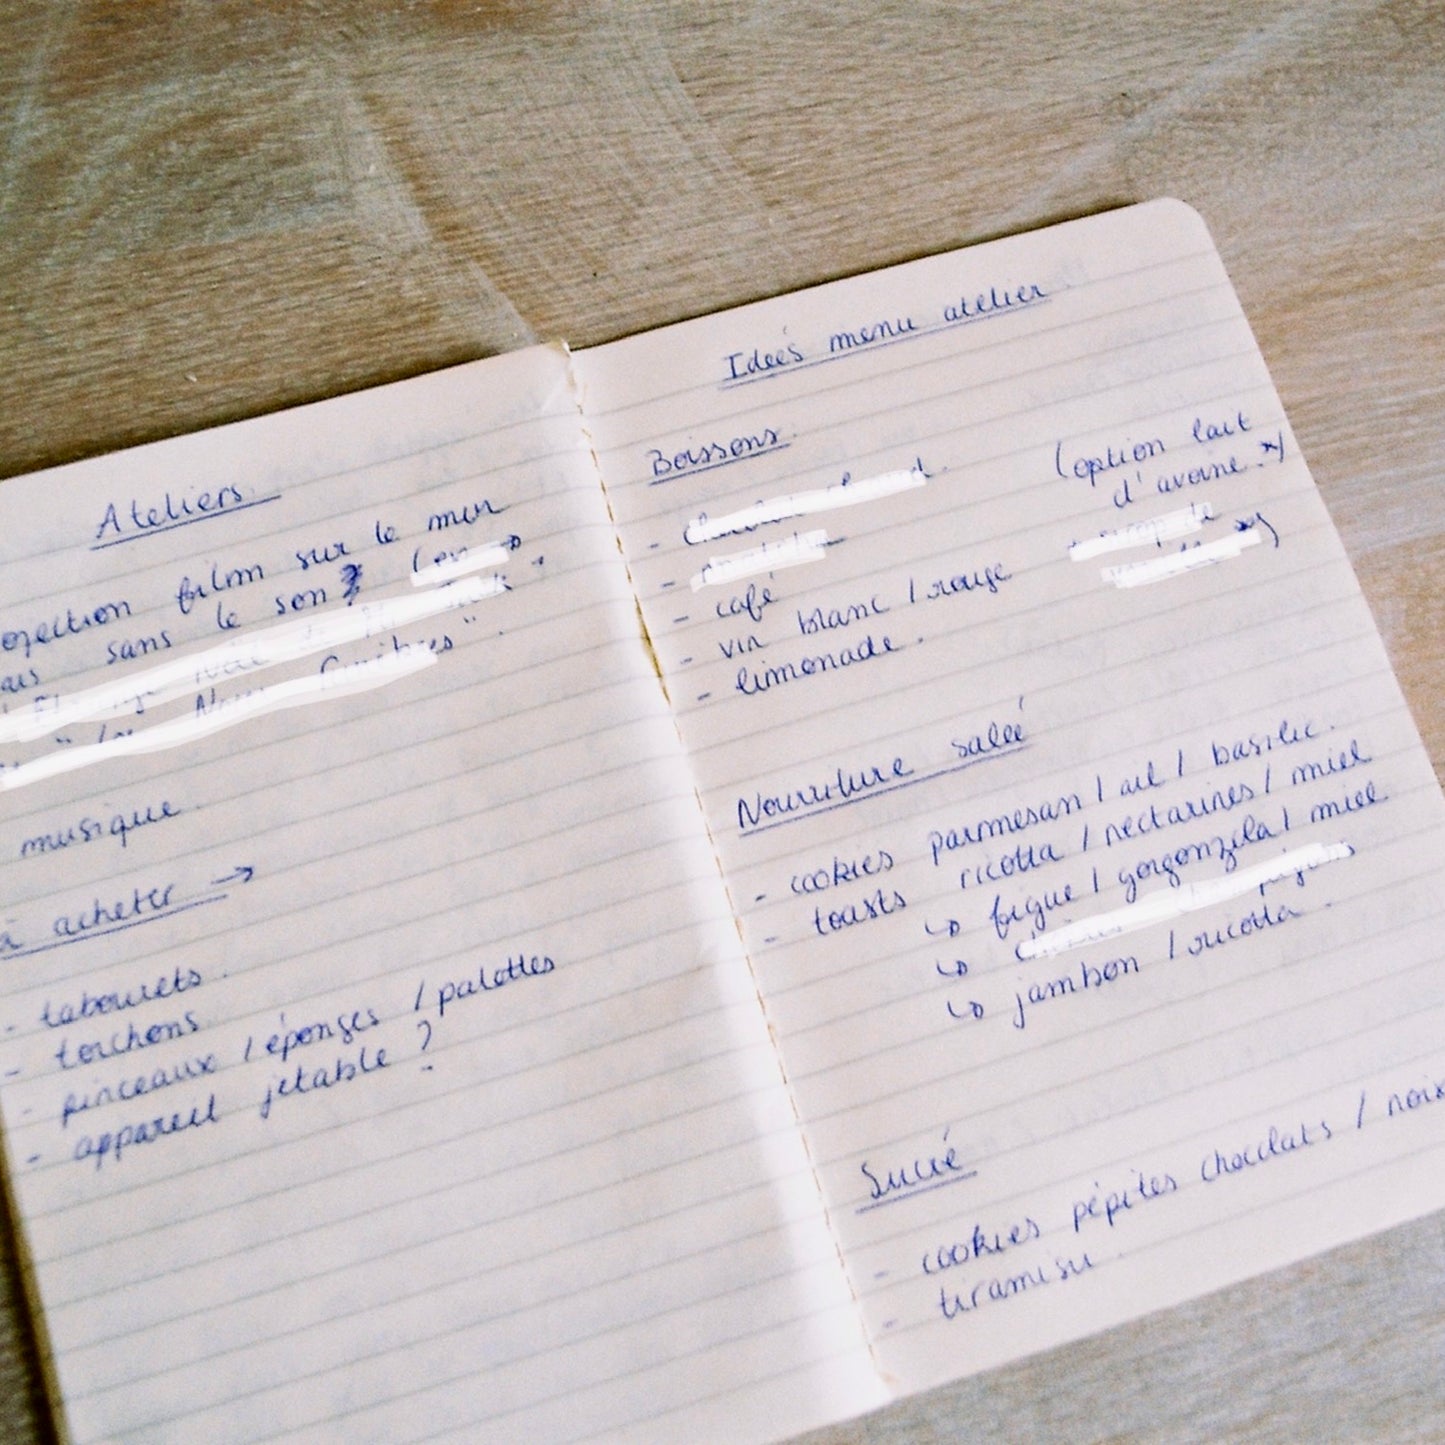 Ateliers
film sur le mur
sans le son
musique.
à acheter →
- tabourets.
- torchons
- pinceaux / éponges / palettes
- appareil jetable ?
Ideés menu atelier
Boissons.
(option lait
d'avoine.*)
- café
- vin blanc / rouge
- limonade.
Nourriture saleé
- cookies parmesan / ail / basilic.
- toasts ricotta / nectarines / miel
↳ figue / gorgonzola / miel
↳ jambon / ricotta.
Sucré
- cookies pépites chocolats / noix
- tiramisu.